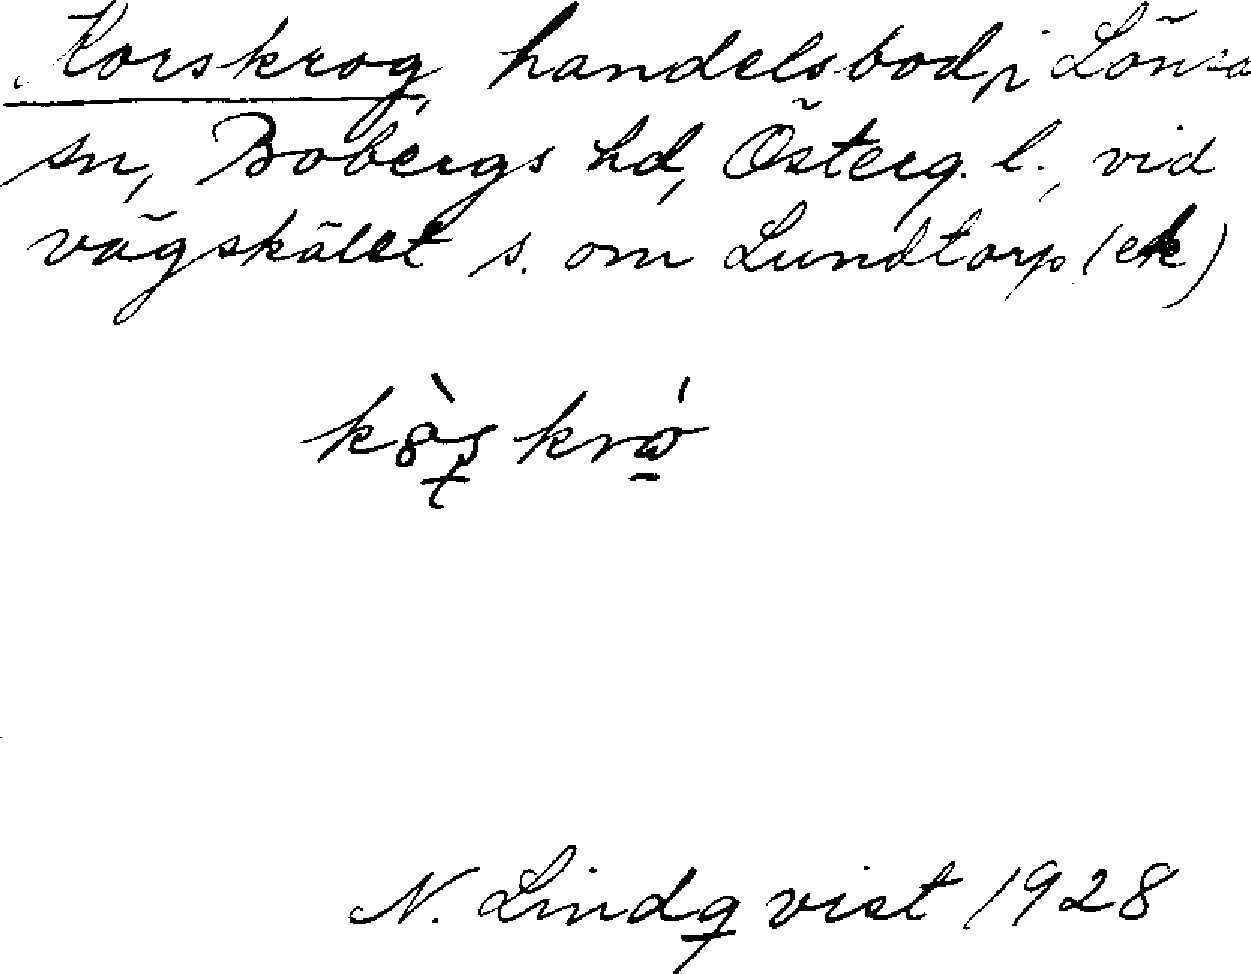 Korskrog, handelsbod, i Lönsa
sn, Bobergs hd, Österg. l., vid
vägskälet s. om Lundtorp (ek)
N. Lindqvist 1928